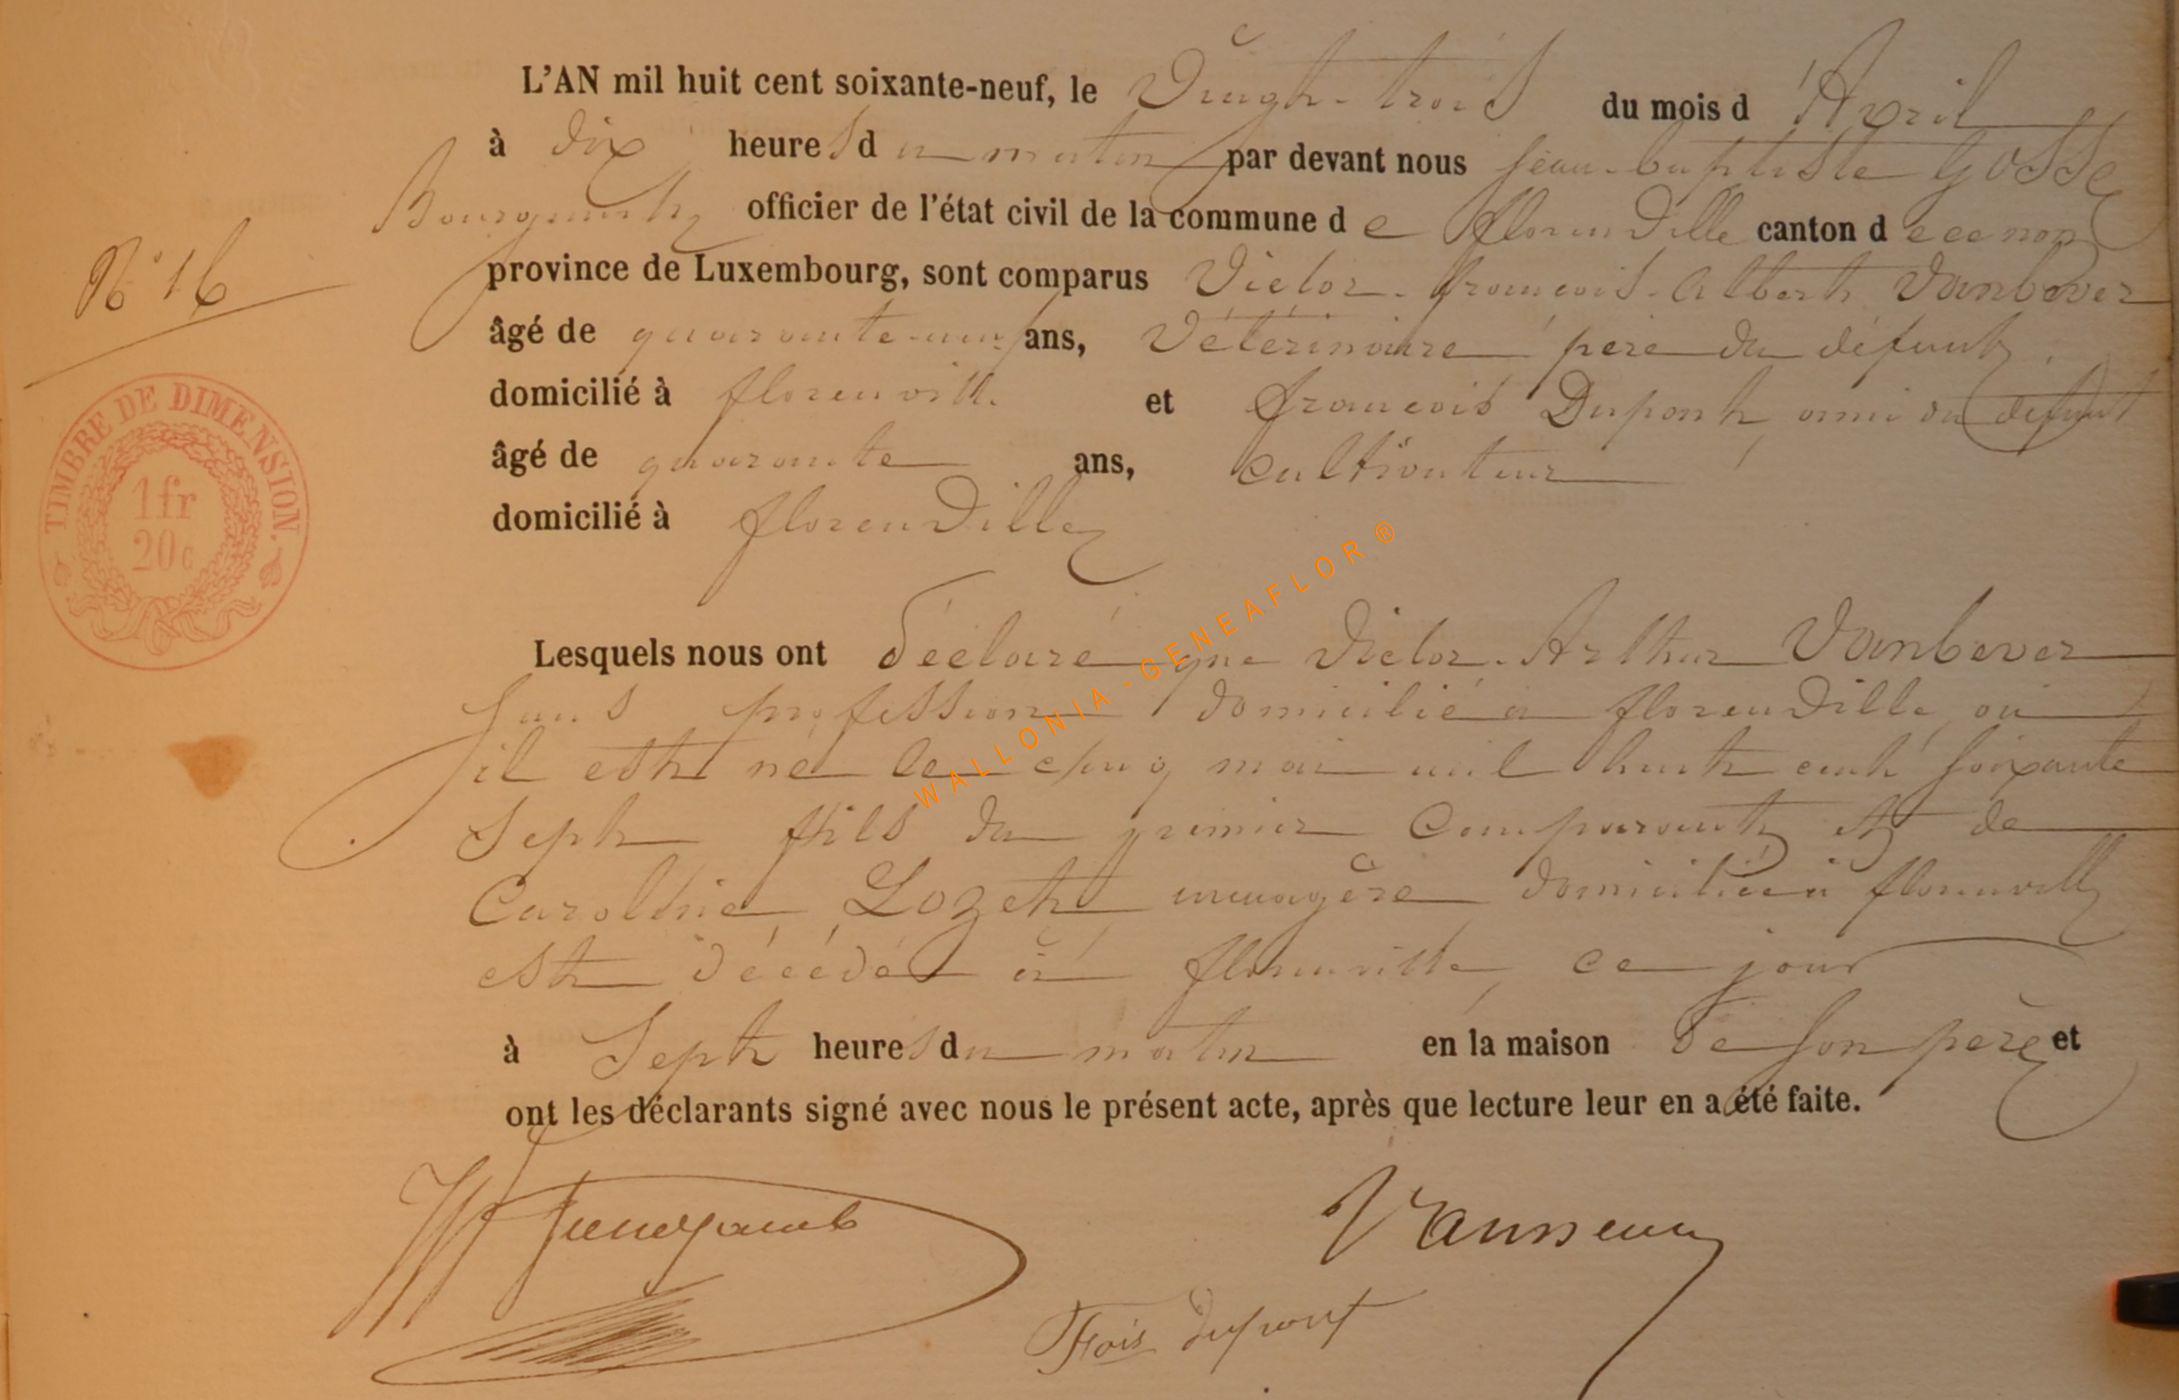 L'AN mil huit cent soixante-neuf, le Vingt-trois du mois d'Avril
à dix heures du matin par devant nous jean-baptiste Gosse
Bourgmestre officier de l'état civil de la commune de florenville canton de
N° 16
province de Luxembourg, sont comparus Victor-françois-albert Vanbever
âgé de ans, Vétérinaire père du défunt,
domicilié à florenville et françois Dupont, ami du défunt
âgé de quarante ans, cultivateur
domicilié à florenville
TIMBRE DE DIMENSION.
1 fr
20 c
Lesquels nous ont déclaré que Victor-Arthur Vanbever
sans profession domicilié à florenville, où
il est né le cinq mai mil huit cent soixante
sept fils du premier Comparant et de
Caroline Lozet ménagère domiciliée à florenville
est décédé à florenville, ce jour
à sept heures du matin en la maison de son père et
ont les déclarants signé avec nous le présent acte, après que lecture leur en a été faite.
Fois dupont
WALLONIA-GENEAFLOR®